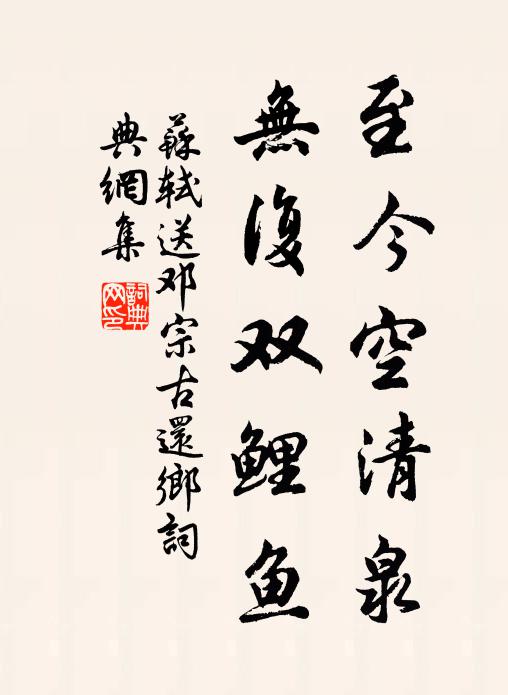 至今空清泉
無復双鲤鱼
蘇轼送邓宗古還鄉詞
典網集
詞典网印